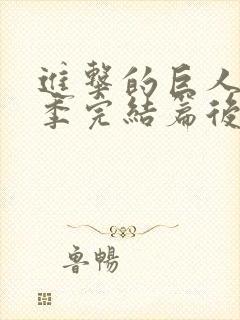 進擊的巨人
季完結篇後
魯暢